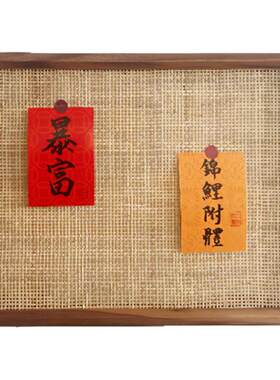 暴富
錦鯉附體